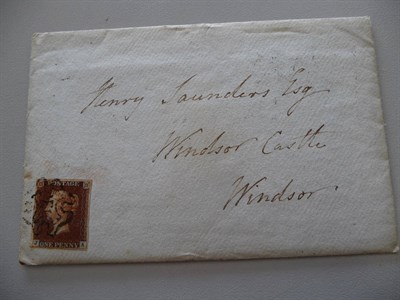 Henry Saunders Esq
Windsor Castle
Windsor.
POSTAGE
ONE PENNY